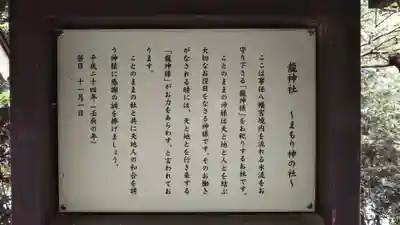 龍神社
~まもり神の社~
ここは事任八幡宮境内を流れる水流をお
守り下さる「龍神様」をお祀りするお社です。
ことのままの神様は天と地と人とを結ぶ
大切なお役目をなさる神様です。そのお働き
がなされる時には、天と地とを行き来する
「龍神様」がお力をあらわす、と言われてお
ります。
ことのままの社と共に天地人の和合を誘
う神様に感謝の誠を捧げましょう。
平成二十四年(壬辰の年)
祭日 十一月一日